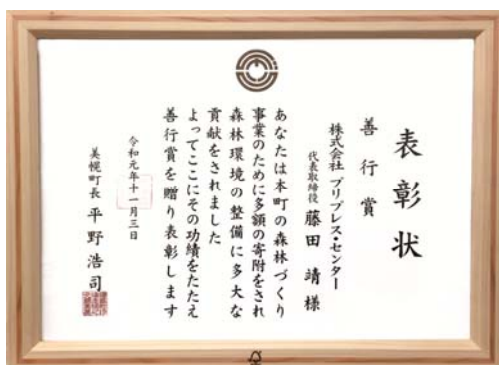 表彰状
善行賞
株式会社 プリプレス・センター
代表取締役 藤田 靖 様
あなたは本町の森林づくり
事業のために多額の寄附をされ
森林環境の整備に多大な
貢献をされました
よってここにその功績をたたえ
善行賞を贈り表彰します
令和元年十一月三日
美幌町長 平野浩司